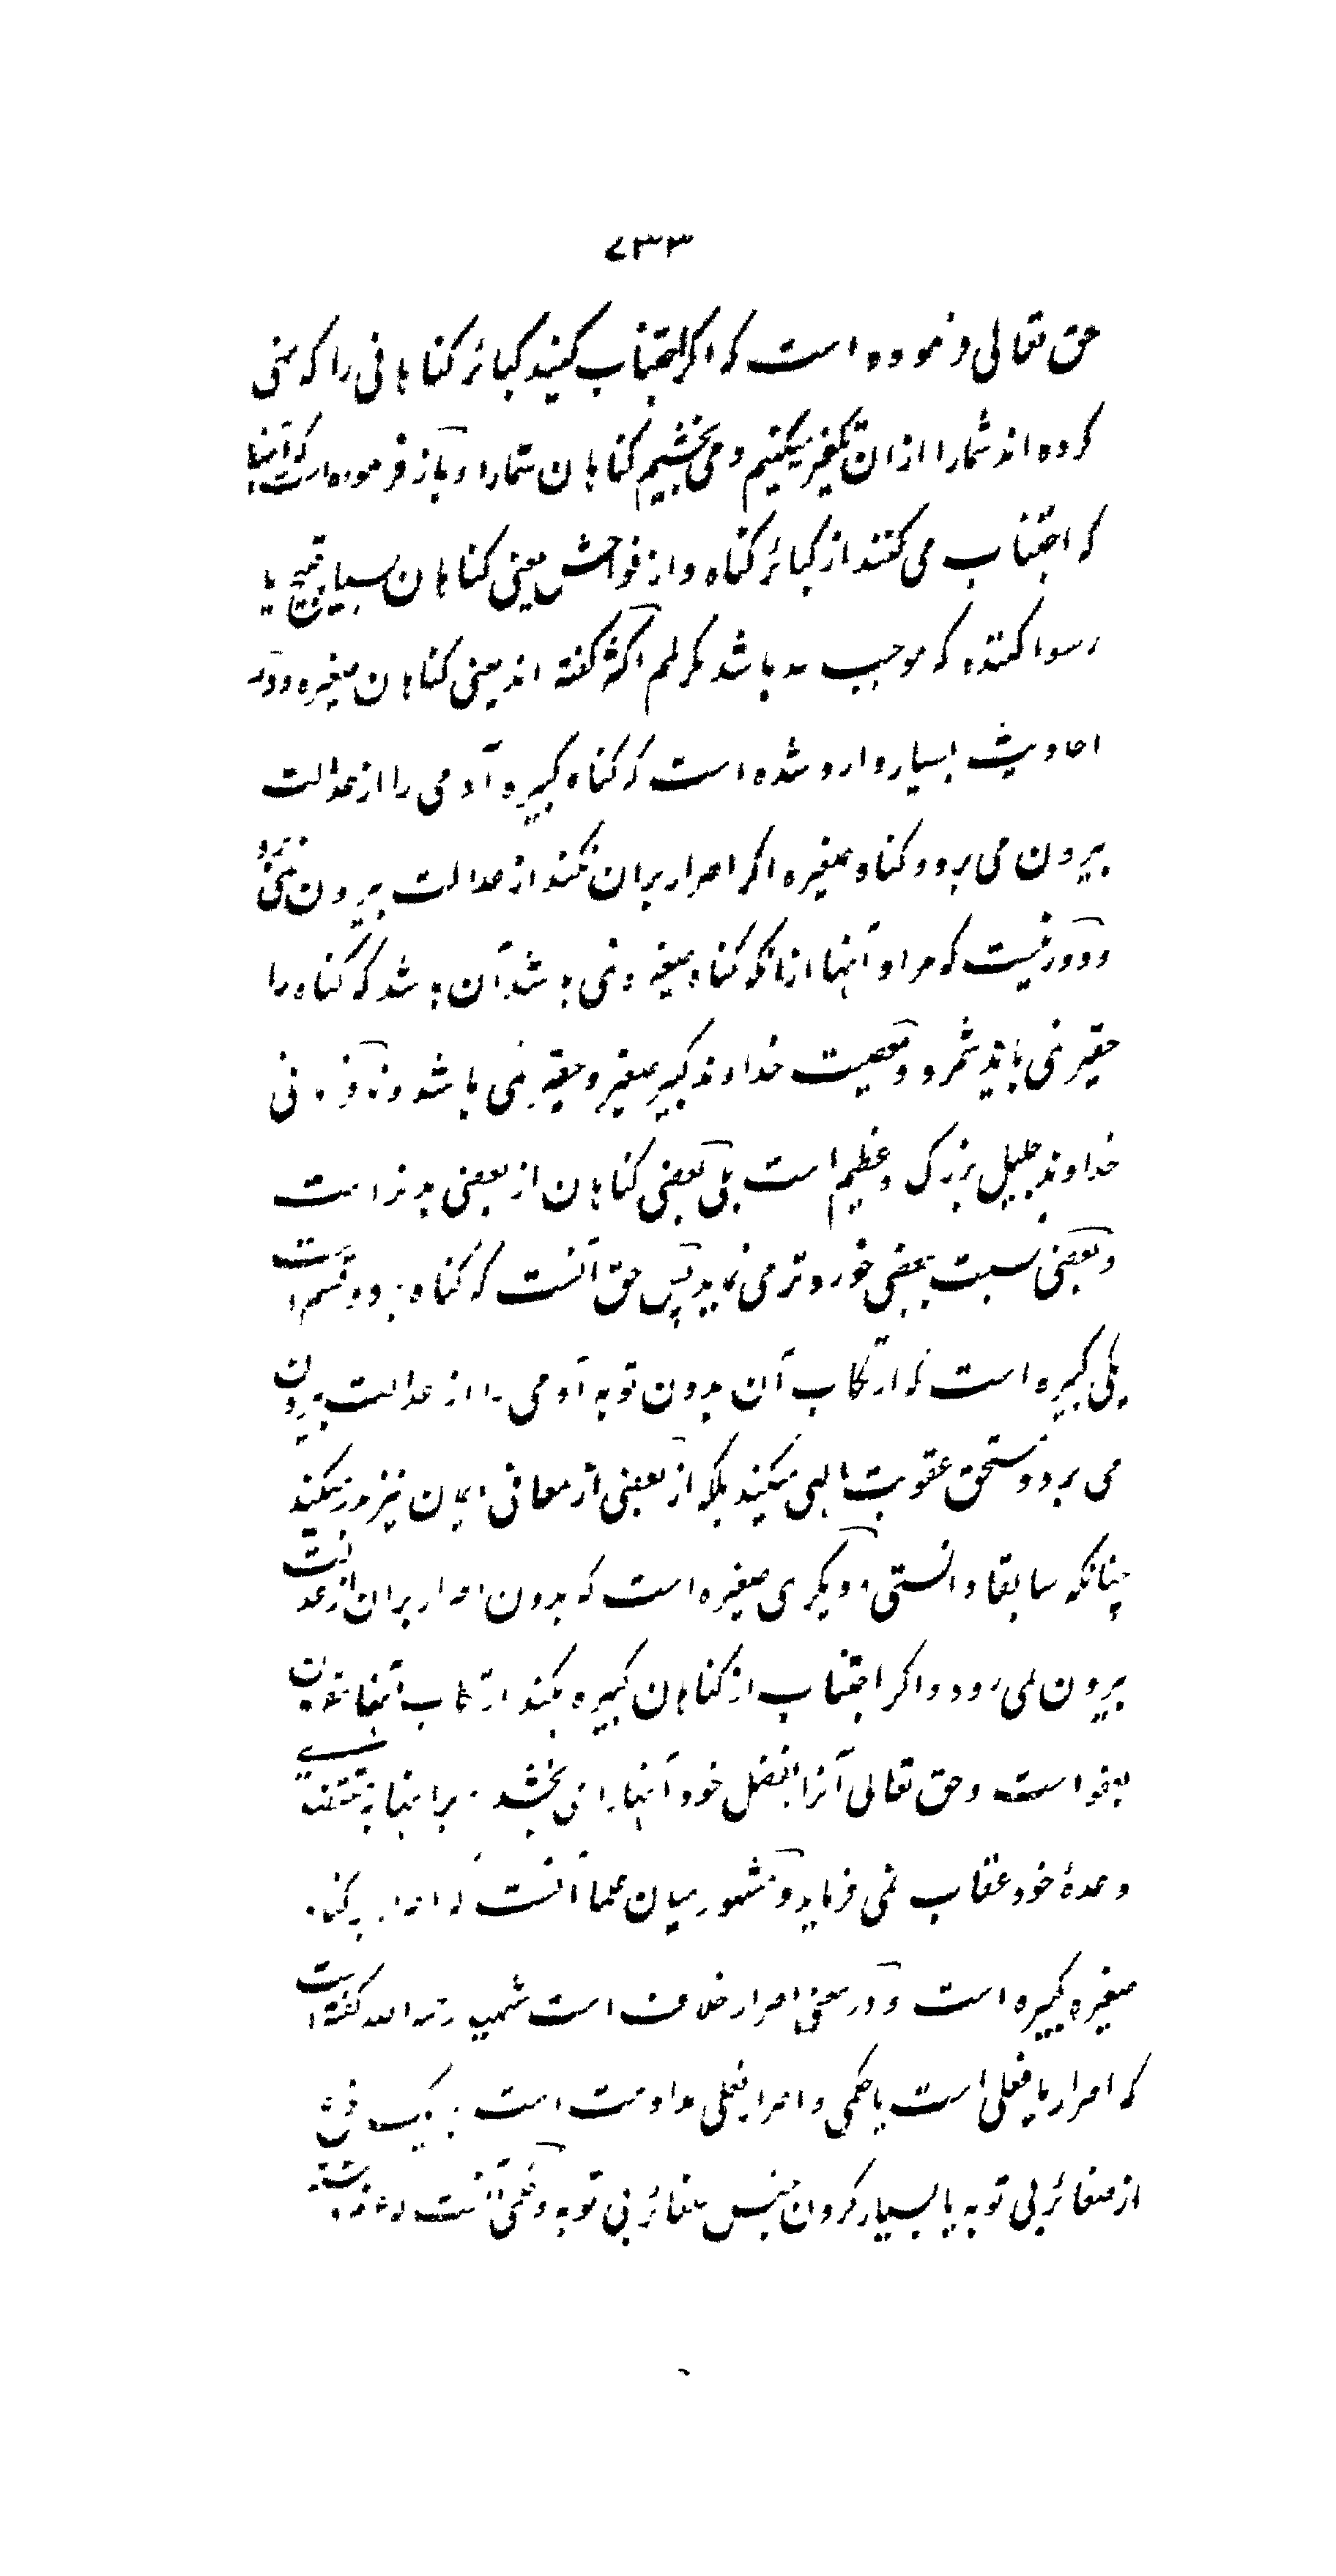 ۷۳۳
حق تعالی فرموده است که اگر اجتناب کنید کبائر گناهانی را که نهی
کرده اند شما را ازان تکفیر میکنیم و می بخشیم گناهان شما را و باز فرموده است که آنها
که اجتناب می کنند از کبائر گناه و از فواحش یعنی گناهان بسیار قبیح یا
رسوا کننده که موجب حد باشد مگر لمم اکثر گفته اند یعنی گناهان صغیره و در
احادیث بسیار وارد شده است که گناه کبیره آدمی را از عدالت
بیرون می برد و گناه صغیره اگر اصرار بران نکند از عدالت بیرون نمی برد
و دور نیست که مراد آنها ازانکه گناه صغیره نمی باشد آن باشد که گناه را
حقیر نمی باید شمرد و معصیت خداوند کبیر صغیر و حقیر نمی باشد و نافرمانی
خداوند جلیل بزرگ و عظیم است بلی بعضی گناهان از بعضی بدتر است
و بعضی نسبت ببعضی خوردتر می نماید پس حق آنست که گناه بر دو قسم است
یکی کبیره است که ارتکاب آن بدون توبه آدمی را از عدالت بیرون
می برد و مستحق عقوبت الهی میکند بلکه از بعضی از معانی ایمان نیز بدر میکند
چنانکه سابقا دانستی و دیگری صغیره است که بدون اصرار بران از عدالت
بیرون نمی رود و اگر اجتناب از گناهان کبیره بکند ارتکاب آنها مقرون
بعفو است و حق تعالی آنرا بفضل خود آنها را می بخشد و بر اینها بمقتضای
وعدهٔ خود عقاب نمی فرماید و مشهور میان علما آنست که اصرار بر گناه
صغیره کبیره است و در معنی اصرار خلاف است شهید رحمه الله گفته است
که اصرار یا فعلی است یا حکمی و اصرار فعلی مداومت است بر یک نوع
از صغائر بی توبه یا بسیار کردن جنس صغائر بی توبه و حکمی آنست که عزم داشته